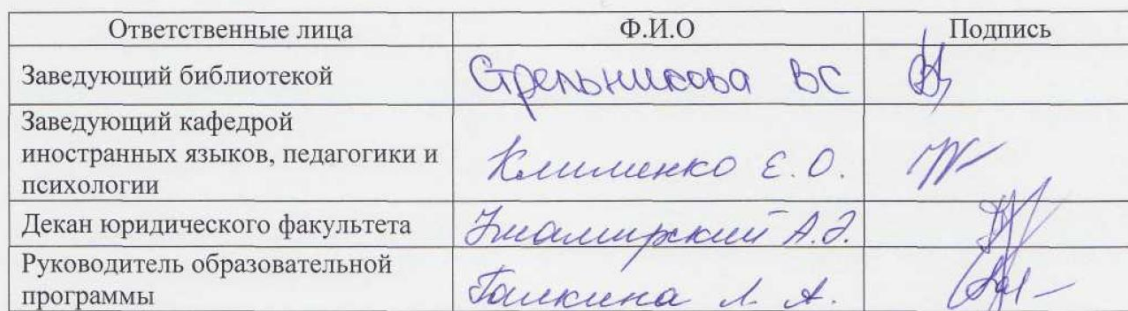 Ответственные лица Ф.И.О Подпись
Заведующий библиотекой Стрельникова ВС
Заведующий кафедрой
иностранных языков, педагогики и Клименко Е.О.
психологии
Декан юридического факультета А.Э.
Руководитель образовательной
программы Галкина Л. А.